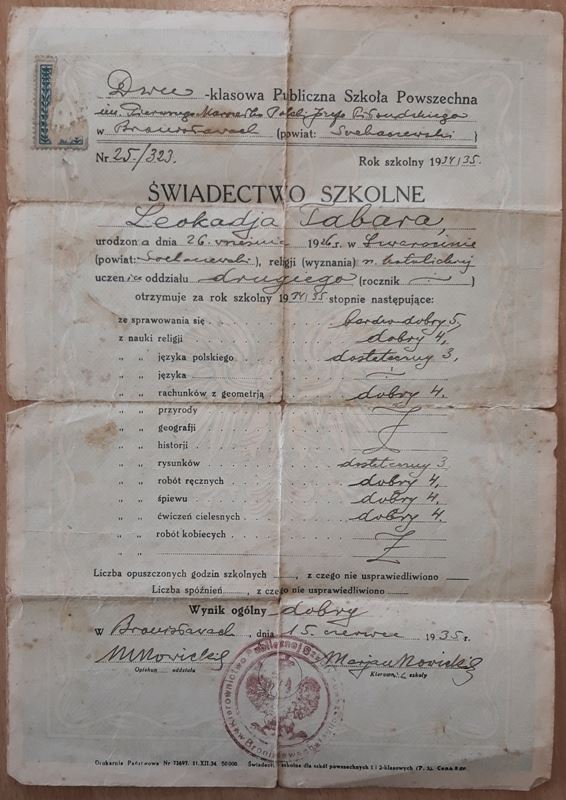 Dwu -klasowa Publiczna Szkoła Powszechna
im. Pierwszego Marszałka Polski Józefa Piłsudskiego
w Bronisławach (powiat: Sochaczewski)
Nr. 25/323. Rok szkolny 1934/35.
ŚWIADECTWO SZKOLNE
Leokadja Tabara,
urodzona dnia 26. września 1926 r. w
(powiat: Sochaczewski), religji (wyznania) rz. katolickiej
uczenica oddziału drugiego (rocznik ÷)
otrzymuje za rok szkolny 1934/35 stopnie następujące:
ze sprawowania się bardzo dobry 5,
z nauki religji dobry 4.
„ „ języka polskiego dostateczny 3,
„ „ języka ÷
„ „ rachunków z geometrją dobry 4.
„ „ przyrody
„ „ geografji
„ „ historji
„ „ rysunków dostateczny 3
„ „ robót ręcznych dobry 4.
„ „ śpiewu dobry 4.
„ „ ćwiczeń cielesnych dobry 4.
„ „ robót kobiecych
„ „
Liczba opuszczonych godzin szkolnych —, z czego nie usprawiedliwiono —
Liczba spóźnień —, z czego nie usprawiedliwiono —
Wynik ogólny dobry
w Bronisławach, dnia 15. czerwca 1935 r.
MNowicka Marjan Nowicki
Opiekun oddziału Kierownik szkoły
Kierownictwo Publicznej Szkoły Powszechnej w Bronisławach
Drukarnia Państwowa Nr 73697. 11.XII.34. 50 000 Świadectwo szkolne dla szkół powszechnych 1 i 2-klasowych (P. 3). Cena 8 gr.